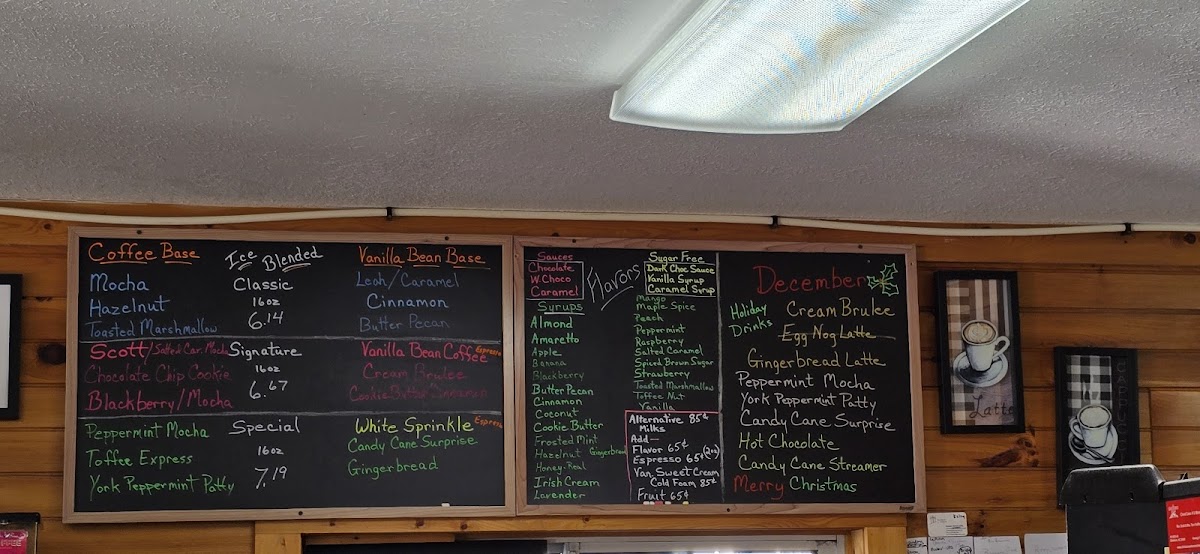 Coffee Base
Ice Blended
Vanilla Bean Base
Mocha
Hazelnut
Toasted Marshmallow
Classic
16oz
6.14
Leah/Caramel
Cinnamon
Butter Pecan
Scott/Salted Car. Mocha
Chocolate Chip Cookie
Blackberry/Mocha
Signature
16oz
6.67
Vanilla Bean Coffee Espresso
Cream Brulee
Cookie Butter Cinnamon
Peppermint Mocha
Toffee Express
York Peppermint Patty
Special
16oz
7.19
White Sprinkle Espresso
Candy Cane Surprise
Gingerbread
Sauces
Chocolate
W. Choco
Caramel
Flavors
Syrups
Almond
Amaretto
Apple
Banana
Blackberry
Butter Pecan
Cinnamon
Coconut
Cookie Butter
Frosted Mint
Hazelnut Gingerbread
Honey-Real
Irish Cream
Lavender
Sugar Free
Dark Choc Sauce
Vanilla Syrup
Caramel Syrup
Mango
Maple Spice
Peach
Peppermint
Raspberry
Salted Caramel
Spiced Brown Sugar
Strawberry
Toasted Marshmallow
Toffee Nut
Vanilla
Alternative 85¢
Milks
Add—
Flavor 65¢
Espresso 65¢(2oz)
Van. Sweet Cream
Cold Foam 85¢
Fruit 65¢
December
Holiday
Drinks
Cream Brulee
Egg Nog Latte
Gingerbread Latte
Peppermint Mocha
York Peppermint Patty
Candy Cane Surprise
Hot Chocolate
Candy Cane Streamer
Merry Christmas
Latte